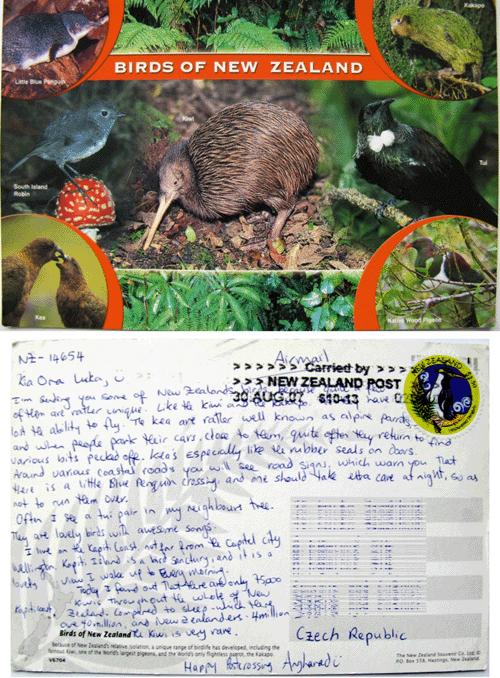 Kakapo
Little Blue Penguin
BIRDS OF NEW ZEALAND
Kiwi
South Island
Robin
Tui
Kea
Native Wood Pigeon
NZ-14654
Airmail
Kia Ora Luka,
> > > > > > Carried by > > > >
> > > NEW ZEALAND POST
30 AUG.07
I'm sending you some of New Zealands birds because quite a few
of them are rather unique. Like the Kiwi and have
lost the ability to fly. The kea are rather well known as alpine parrots,
and when people park their cars close to them, quite often they return to find
various bits pecked off. Kea's especially like the rubber seals on doors.
Around various coastal roads you will see road signs, which warn you that
there is a little Blue Penguin crossing, and one should take extra care at night, so as
not to run them over.
Often I see a tui pair in my neighbours tree.
They are lovely birds with awesome songs.
I live on the Kapiti Coast not far from the Capital city
Wellington. Kapiti Island is a bird sanctuary, and it is a
lovely view I wake up to every morning.
Today I found out that there are only 75000
Kiwis throughout the whole of New
Zealand. Compared to sheep which have
over 40 million, and New Zealanders 4 million
the Kiwi is very rare.
Kapiti Coast,
Birds of New Zealand
Because of New Zealand's relative isolation, a unique range of birdlife has developed, including the
famous Kiwi, one of the World's largest pigeons, and the World's only flightless parrot, the Kakapo.
V6704
Happy Postcrossing Angharad
Czech Republic
The New Zealand Souvenir Co. Ltd. ©
P.O. Box 578, Hastings, New Zealand.
NEW ZEALAND